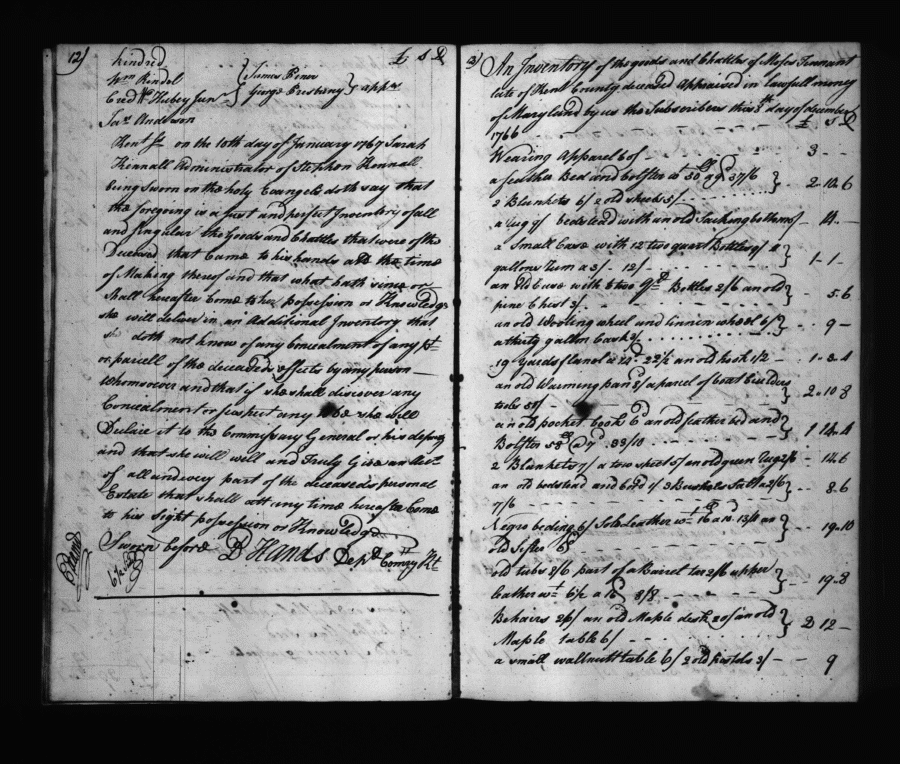 12)
kindred £ S D
Wm Rindel } James Piner
Cred Wm Hubey Junr } George Presbury } appr
Jas Anderson
Kent Ss on the 10th day of January 1767 Sarah
Kennall Administrator of Stephen Kennall
being Sworn on the holy Evangels doth say that
the foregoing is a just and perfect Inventory of all
and singular the Goods and Chattles that were of the
Deceased that Came to his hands att the time
of Making thereof and that what hath since or
Shall hereafter Come to her possession or Knowledge
she will deliver in an Additional Inventory that
doth not know of any Concealment of any pt
or parcell of the deceaseds Effects by any person
Whomsoever and that if she shall discover any
Concealment or suspect any to be she will
Declare it to the Commissary General or his deputy
and that she will well and Truly Give an Acct
of all and every part of the deceaseds personal
Estate that shall att any time hereafter Come
to his sight possession or Knowledge
Sworn before D Hands Depy Comry Kt
13)
An Inventory of the goods and Chattles of Moses Tennant
late of Kent County deceased Appraised in lawfull money
of Maryland by us the Subscribers this 8th day of december
1766 £ S D
Wearing Apparel 60/ 3 -
a feather Bed and bolster wt 50 lb @ 9d 37/6 }
2 Blankets 6/ 2 old sheets 5/ } 2.10.6
a Rug 9/ bedstead with an old Sacking bottom 5/ 14 -
a Small Case with 12 two quart Bottles 9/ 4 }
gallons Rum a 3/ 12/ } 1-1-
an old Case with two qt Bottles 2/6 an old }
pine Chest 3/ } 5.6
an old Wooling wheel and linnen wheel 6/ }
a thirty gallon Cask 3/ } 9 -
19 yards flanol a 14d 22/2 an old hook 1/2 1-3-4
an old Warming pan 2/ a parcel of boat builders }
tools } 2.10 8
an old pocket book 6d an old feather bed and }
Bolster 58 lb @ 7d 33/10 } 1 14.4
2 Blankets 7/ a tow sheet 5/ an old green Rug 2/6 14.6
an old bedstead and Cord 1/ 3 Bushels Salt a 2/6 }
7/6 } 8.6
Negro beding 6/ Sole Leather wt 16 lb a 10d 13/4 an }
old Sifter 6d } 19.10
old tubs 2/6 part of a Barrel tar 2/6 upper }
Leather wt 6½ a 16d 8/8 } 19.8
8 chairs 26/ an old Maple desk 20/ an old }
Maple table 6/ } 2 12 -
a small wallnutt table 6/ 2 old pistols 3/ 9